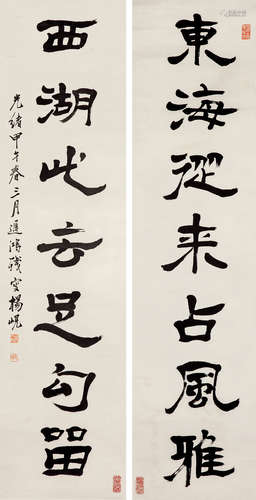 東海從来占風雅
西湖此去足勾留
光緒甲午春三月遲鴻殘叟楊峴